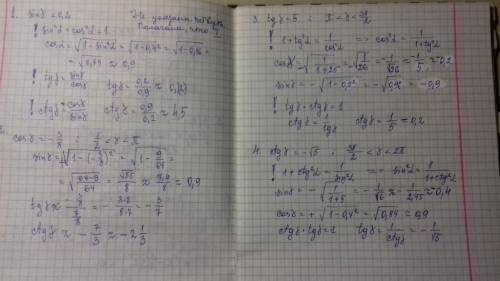 1. sinα = 0,2 Не указана четверть
Полагаем, что I.
! sin²α + cos²α = 1
cosα = √(1 - sin²α) = √(1 - 0,2²) = √(1 - 0,16) =
= √0,84 ≈ 0,9
! tgα = sinα/cosα tgα = 0,2/0,9 ≈ 0,(2)
! ctgα = cosα/sinα ctgα = 0,9/0,2 ≈ 4,5
2. cosα = -3/8 π/2 < α < π
sinα = √(1 - (-3/8)²) = √(1 - 9/64) =
= √((64-9)/64) = √55/8 ≈ 7,9/8 ≈ 0,9
tgα ≈ = -3·8/8·7 = -3/7
ctgα ≈ -7/3 ≈ -2 1/3
3. tgα = 5 ; π < α < 3π/2
! 1 + tg²α = 1/cos²α => cos²α = 1/(1+tg²α)
cosα = -√(1/(1+25)) = -√(1/26) = -1/√26 ≈ 1/5 ≈ -0,2
sinα = -√(1 - 0,2²) = -√0,96 = -0,9
! tgα · ctgα = 1
ctgα = 1/tgα ctgα = 1/5 = 0,2
4. ctgα = -√5 ; 3π/2 < α < 2π
! 1 + ctg²α = 1/sin²α => sin²α = 1/(1+ctg²α)
sinα = -√(1/(1+5)) = -1/√6 ≈ -1/2,45 ≈ -0,4
cosα = +√(1 - 0,4²) = √0,84 = 0,9
ctgα · tgα = 1 tgα = 1/ctgα = -1/√5